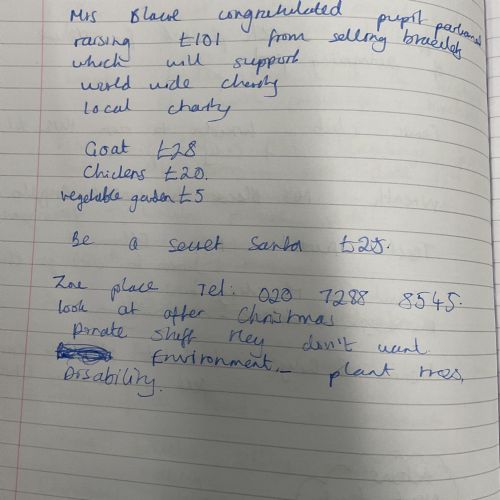 Mrs Blave congratulated pupil parliament
raising £101 from selling bracelets
which will support
world wide charity
local charity
Goat £28
Chickens £20.
vegetable garden £5
Be a secret Santa £25.
Zoe place Tel: 020 7288 8545.
look at after Christmas
Donate stuff they don't want.
Environment - plant trees,
Disability.